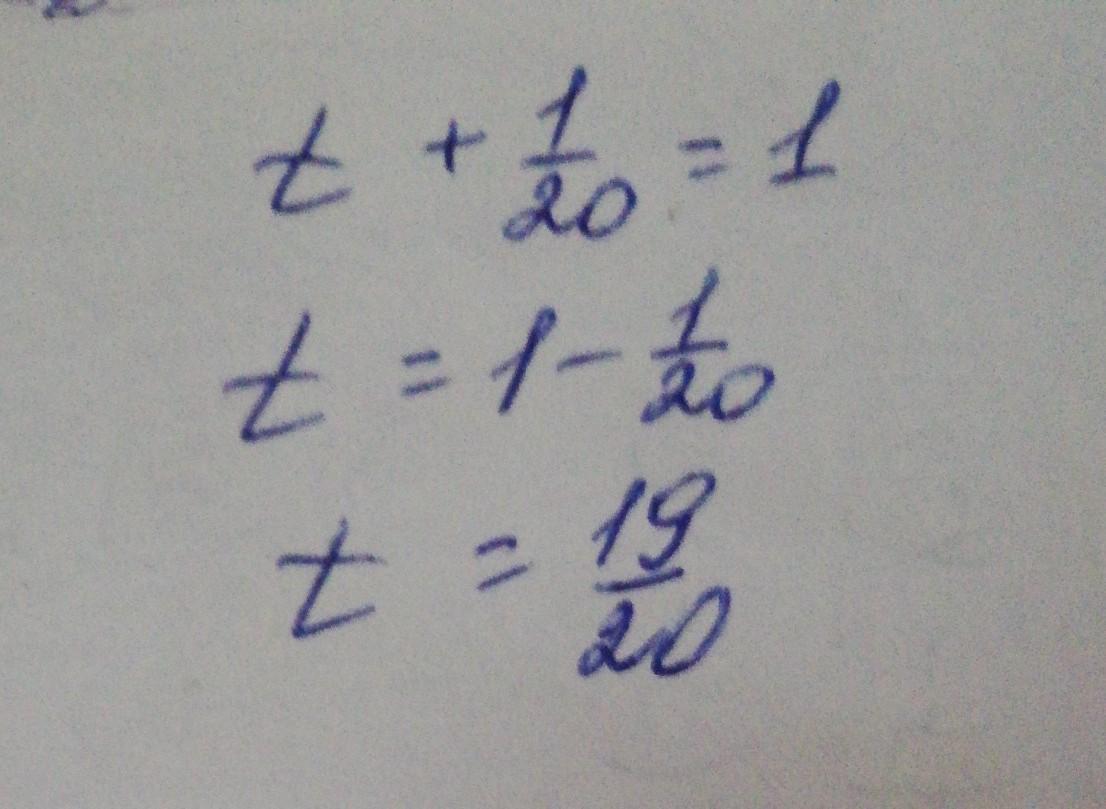 t + 1/20 = 1
t = 1 - 1/20
t = 19/20